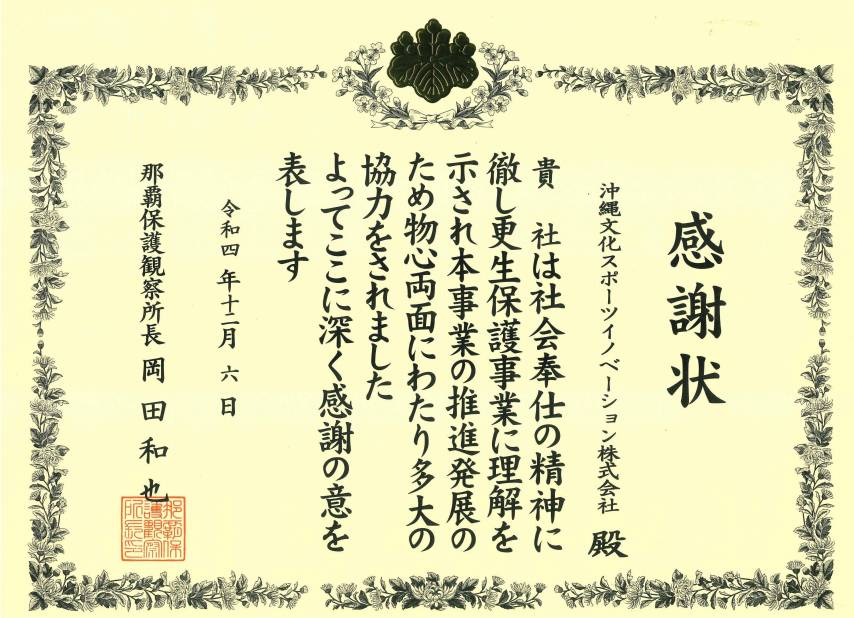 感謝状
沖縄文化スポーツイノベーション株式会社 殿
貴 社は社会奉仕の精神に
徹し更生保護事業に理解を
示され本事業の推進発展の
ため物心両面にわたり多大の
協力をされました
よってここに深く感謝の意を
表します
令和四年十二月六日
那覇保護観察所長 岡田和也
那覇保
護観察
所長印